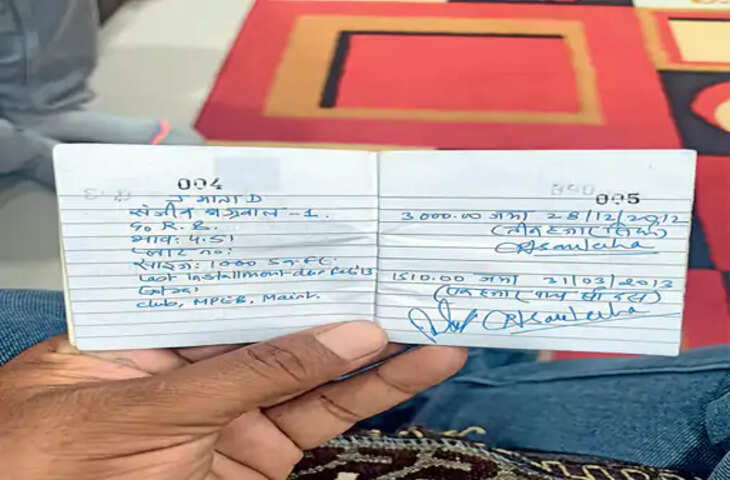 004
संजीव अग्रवाल -1.
भाव: 4.51
साइज: 1000 Sq.Ft.
Last Installment-due Feb'13
Extra:
Club, MPEB, Maint.
005
3000.00 जमा 28/12/2012
(तीन हजार सिर्फ)
1510.00 जमा 31/03/2013
(एक हजार पांच सौ दस)